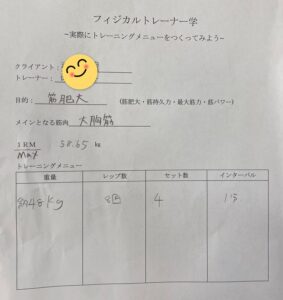 フィジカルトレーナー学
~実際にトレーニングメニューをつくってみよう~
クライアント:
トレーナー:
目的: 筋肥大 (筋肥大・筋持久力・最大筋力・筋パワー)
メインとなる筋肉 大胸筋
1RM 58.65 kg
Max
トレーニングメニュー
重量 レップ数 セット数 インターバル
約48kg 8回 4 1分